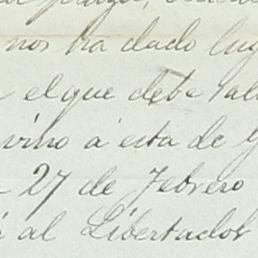 nos ha dado lug
el que debe sal
vino á esta de G
27 de Febrero
al Libertador